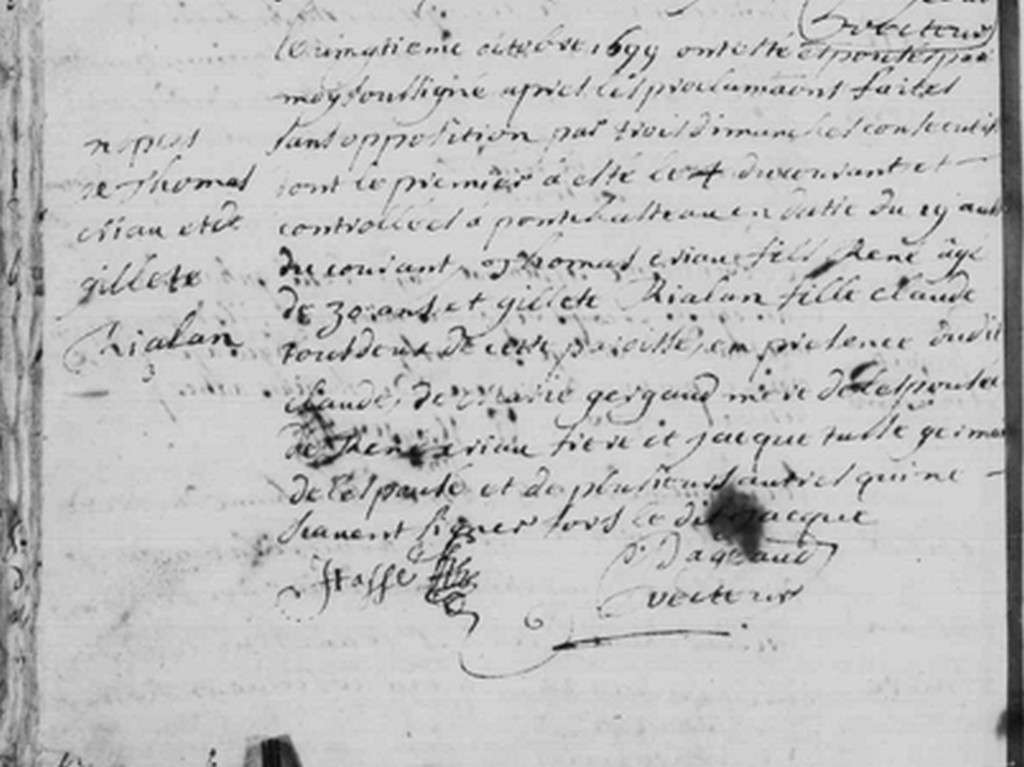 Recteur
le vingtieme octobre 1699 ont esté espousés par
moy soussigné apres les proclama͠ons faites
sans opposition par trois dimanches consecutifs
dont le premier a esté le 4 du courant et
controllées a pontchasteau en datte du 19 aud
du courant, Thomas eriau fils René âgé
de 30 ans et gillete Rialan fille claude
tout deux de cette paroisse, en presence dudit
claude, de marie gergaud mere de l'espousée
de René eriau frere et jacque germain
de l'espousé et de plusieurs autres qui ne
scavent signer fors le dit jacque
nopces
de Thomas
eriau et de
gillete
Rialan
3
Recteur